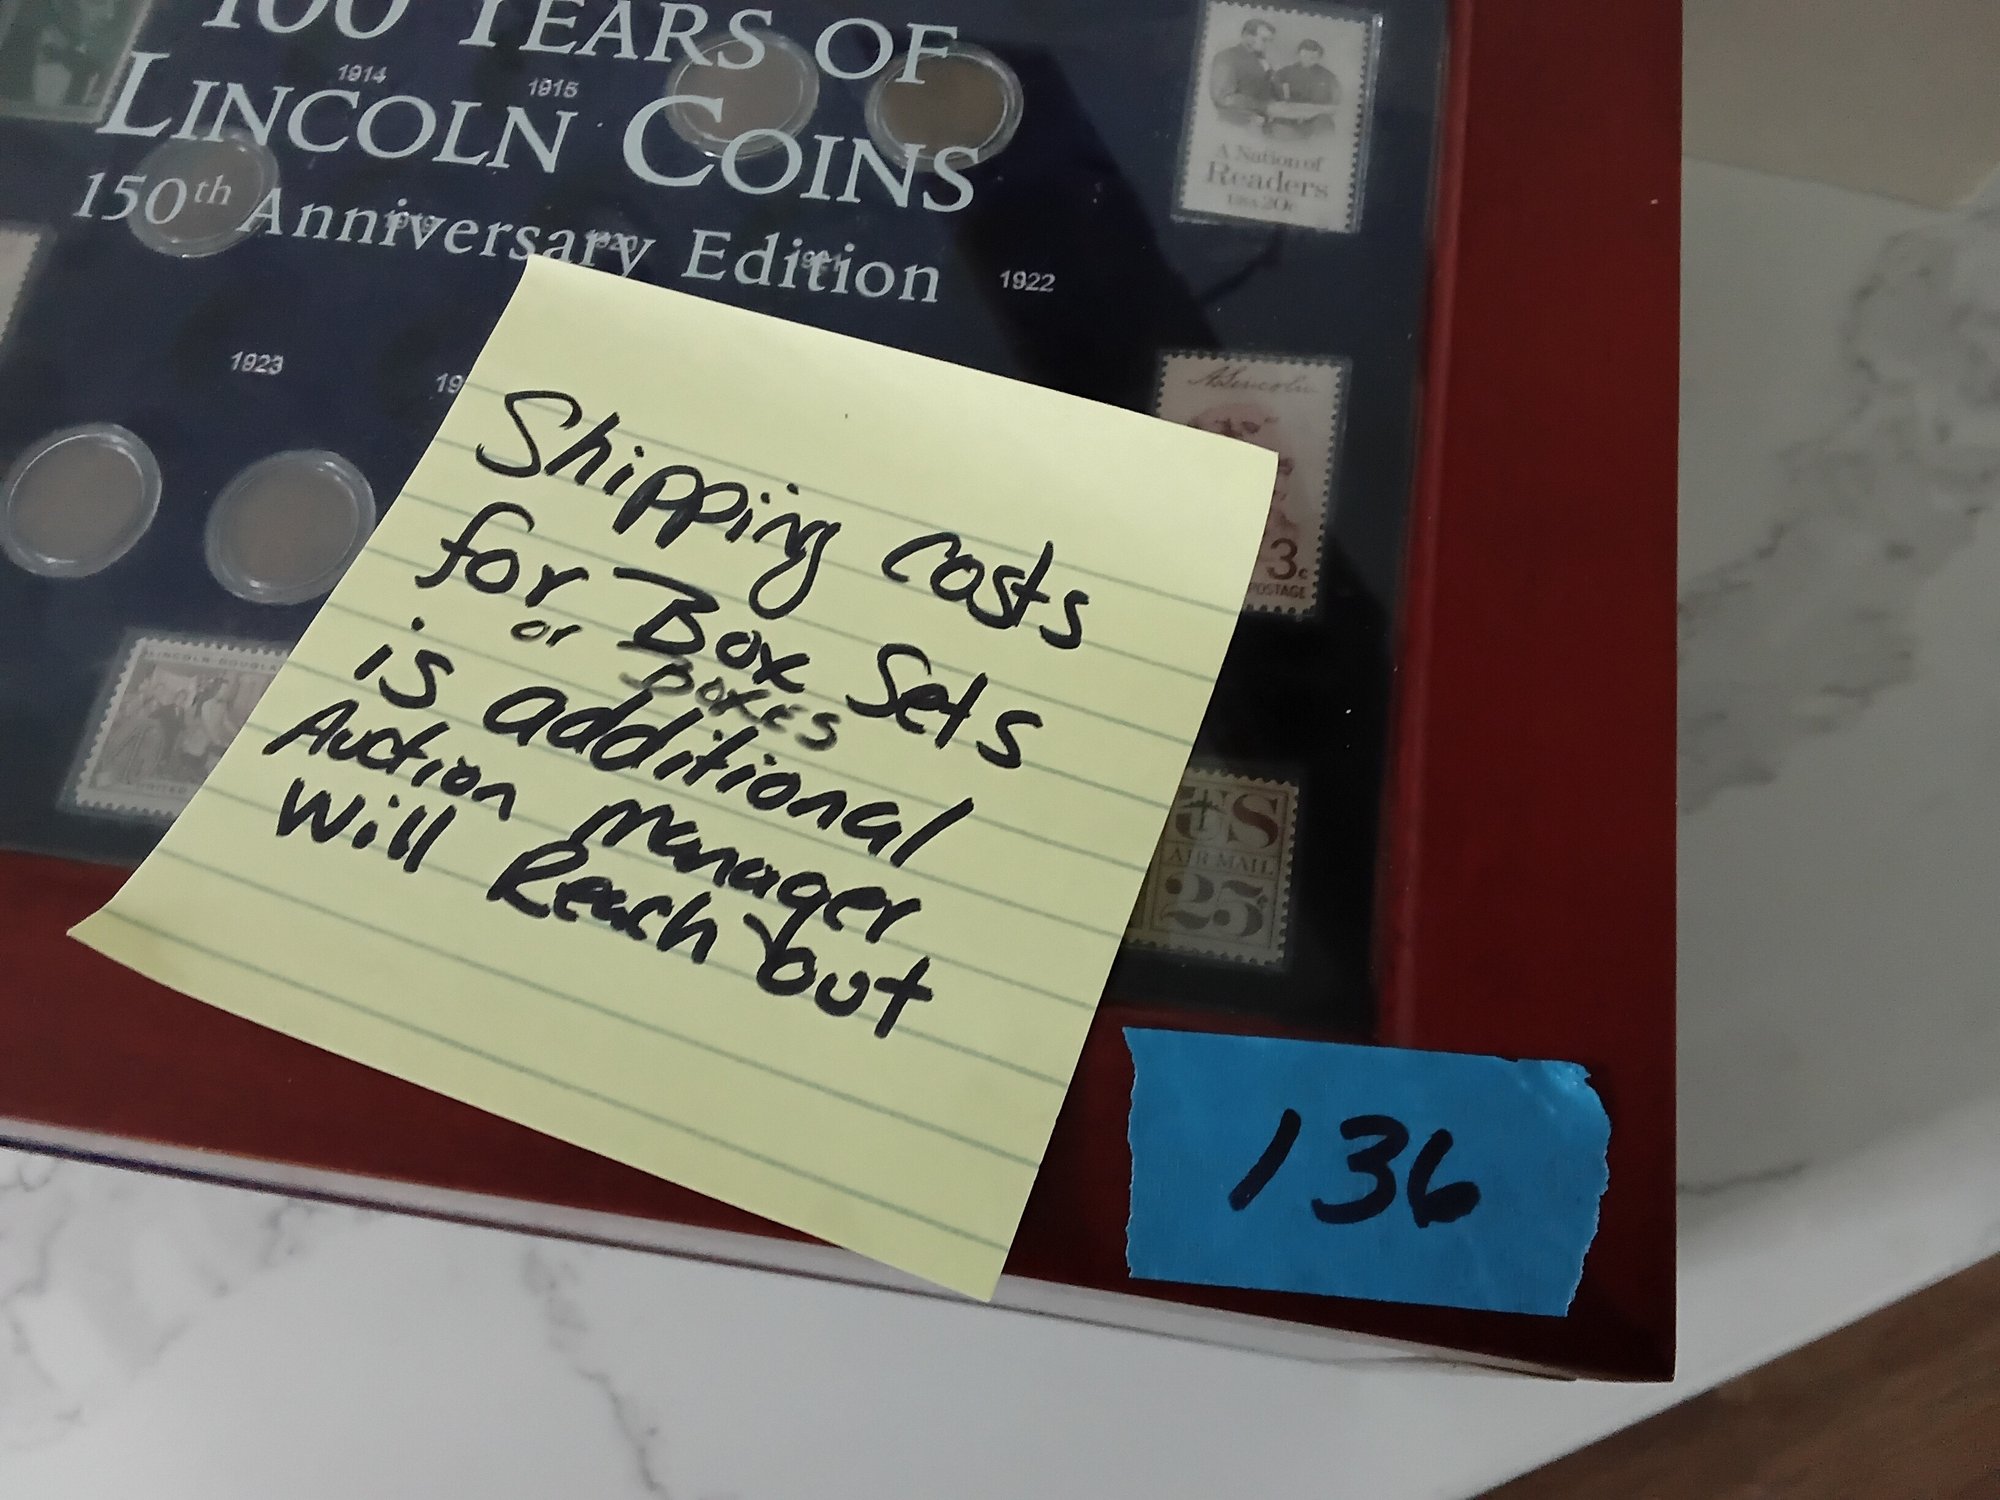 100 YEARS OF
LINCOLN COINS
150th Anniversary Edition
1914
1915
1919
1920
1921
1922
1923
19
A Nation of
Readers
USA 20c
A. Lincoln
3c
POSTAGE
LINCOLN DOUGLA
UNITED
US
AIR MAIL
25c
Shipping costs
for Box Sets
or Boxes
is additional
Auction manager
will Reach out
136